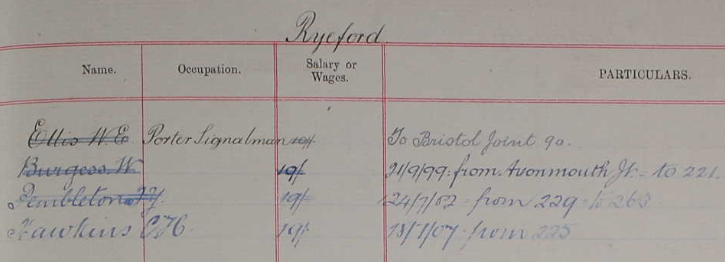 Ryeford
Name. Occupation. Salary or Wages. PARTICULARS.
Ellis W E Porter Signalman 19/- To Bristol Joint 90.
Burgess W 19/- 21/9/99 from Avonmouth Jt. - to 221.
Pembleton 19/- 24/7/02 - from 229 - to 263
Hawkins C H 19/- 13/7/07 - from 225